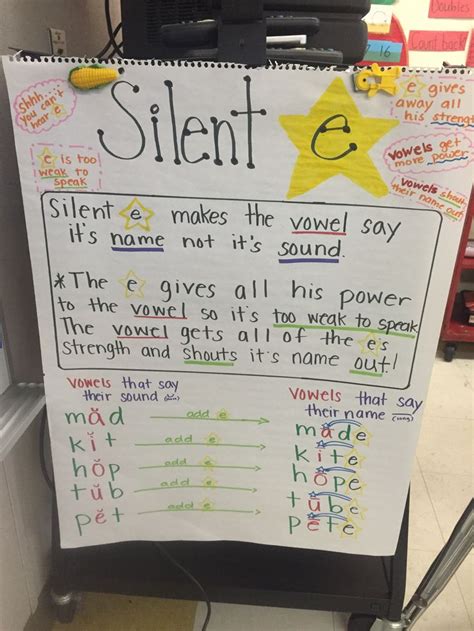 Doubles
7 16
Count back
Shhh...
you can't
hear e
Silent e
e gives
away all
his strength
vowels get
more power
e is too
weak to
speak
vowels shout
their name out
Silent e makes the vowel say
it's name not it's sound.
*The e gives all his power
to the vowel so it's too weak to speak
The vowel gets all of the e's
strength and shouts it's name out!
Vowels that say
their sound
Vowels that say
their name (long)
măd add e māde
kĭt add e kīte
hŏp add e hōpe
tŭb add e tūbe
pĕt add e pēte